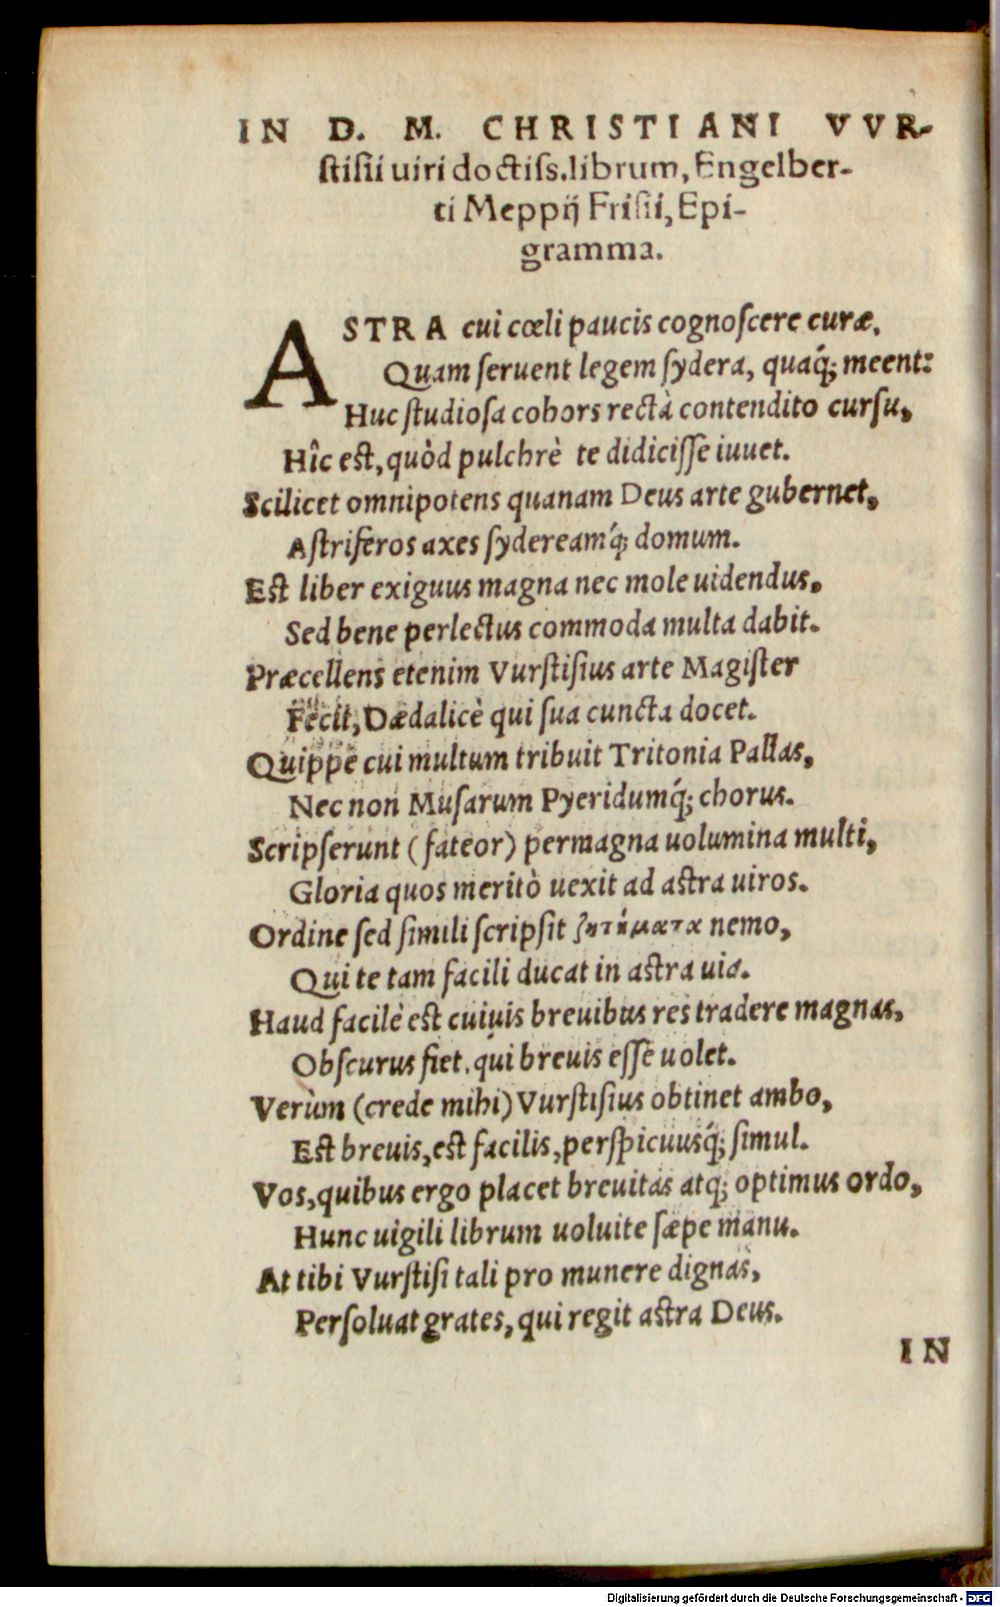 IN D. M. CHRISTIANI VVR-
stisii uiri doctiss. librum, Engelber-
ti Meppij Frisii, Epi-
gramma.
ASTRA cui cœli paucis cognoscere curæ,
Quam seruent legem sydera, quaq́; meent:
Huc studiosa cohors rectà contendito cursu,
Hîc est, quòd pulchrè te didicisse iuuet.
Scilicet omnipotens quanam Deus arte gubernet,
Astriferos axes sydereamq́; domum.
Est liber exiguus magna nec mole uidendus,
Sed bene perlectus commoda multa dabit.
Præcellens etenim Vurstisius arte Magister
Fecit, Dædalicè qui sua cuncta docet.
Quippe cui multum tribuit Tritonia Pallas,
Nec non Musarum Pyeridumq́; chorus.
Scripserunt (fateor) permagna uolumina multi,
Gloria quos meritò uexit ad astra uiros.
Ordine sed simili scripsit ζητήματα nemo,
Qui te tam facili ducat in astra uia.
Haud facilè est cuiuis breuibus res tradere magnas,
Obscurus fiet, qui breuis esse uolet.
Verùm (crede mihi) Vurstisius obtinet ambo,
Est breuis, est facilis, perspicuusq́; simul.
Vos, quibus ergo placet breuitas atq; optimus ordo,
Hunc uigili librum uoluite sæpe manu.
At tibi Vurstisi tali pro munere dignas,
Persoluat grates, qui regit astra Deus.
IN
Digitalisierung gefördert durch die Deutsche Forschungsgemeinschaft - DFG